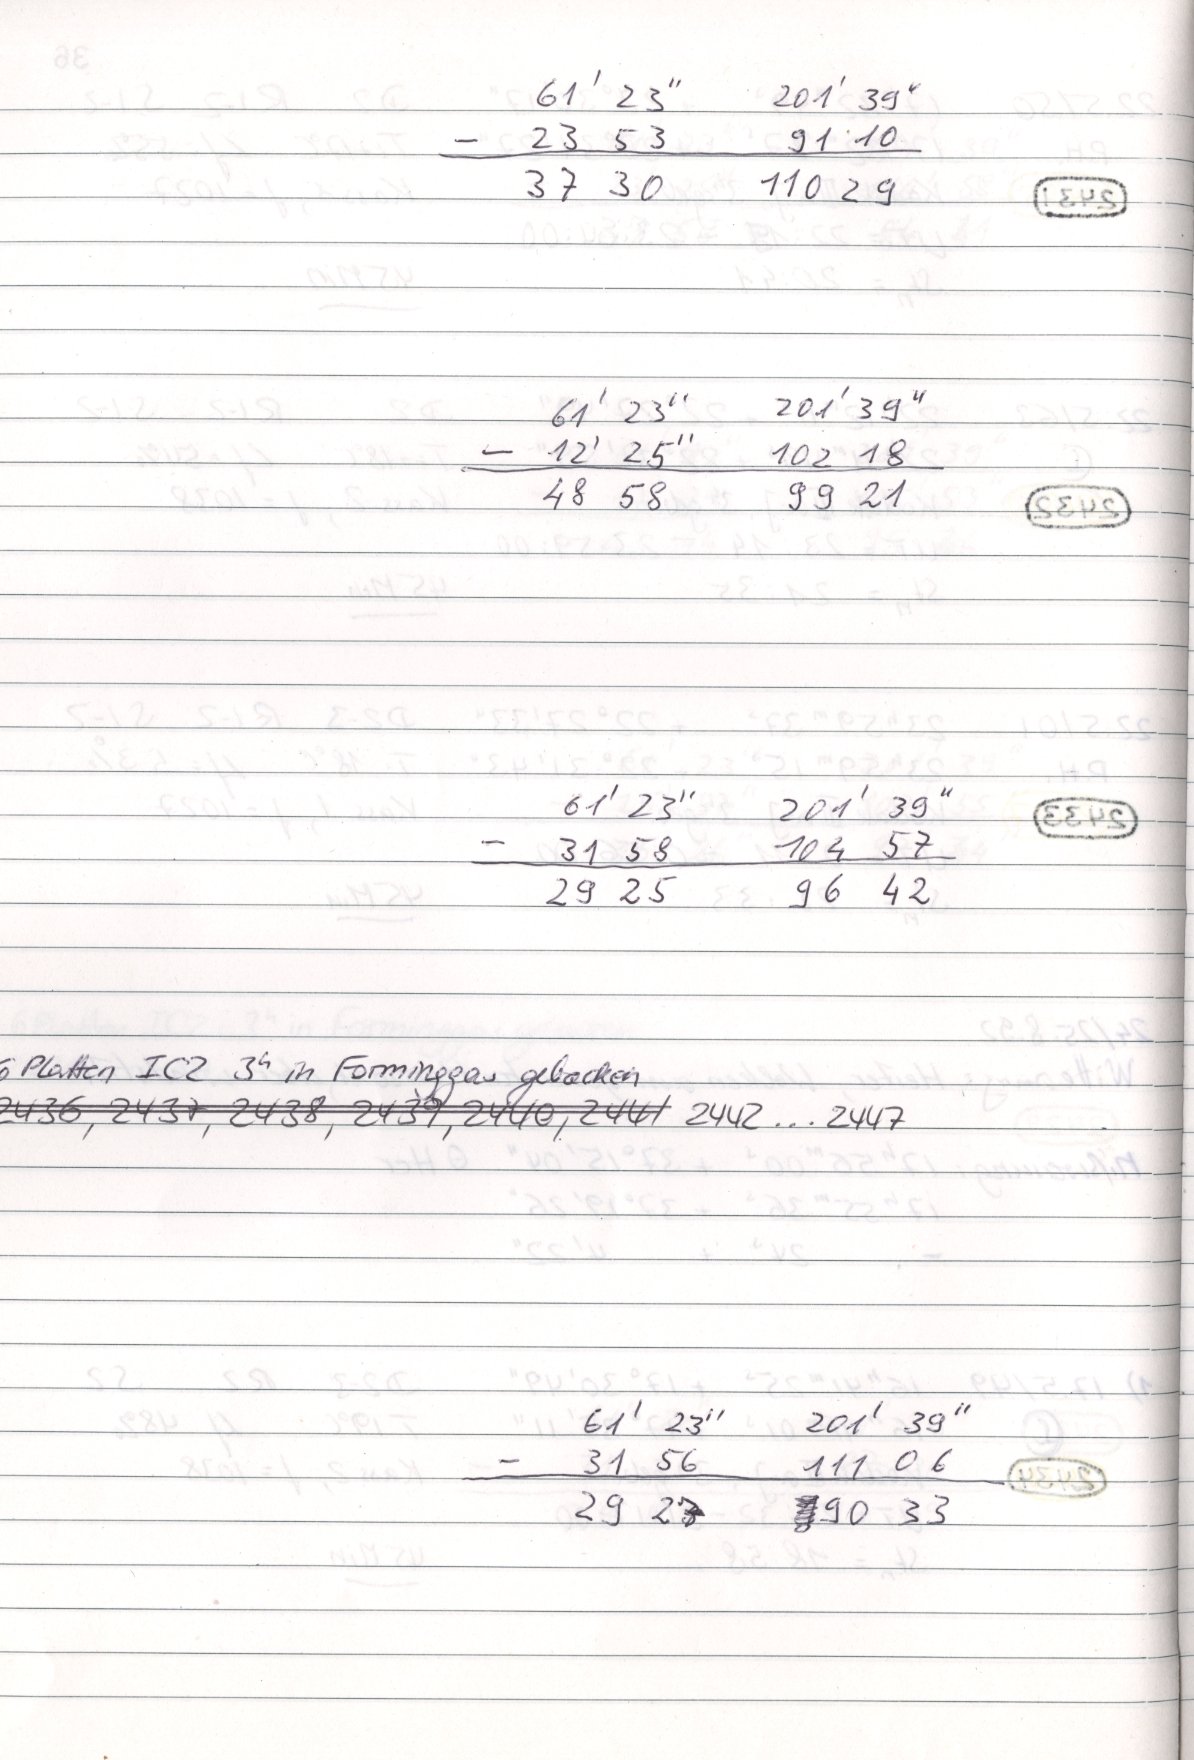 61' 23" 201' 39"
- 23 53 91 10
37 30 110 29
61' 23" 201' 39"
- 12' 25" 102 18
48 58 99 21
61' 23" 201' 39"
- 31 58 104 57
29 25 96 42
6 Platten IC2 3h in Forminggas gebacken
2436, 2437, 2438, 2439, 2440, 2441 2442 ... 2447
61' 23" 201' 39"
- 31 56 111 06
29 27 90 33